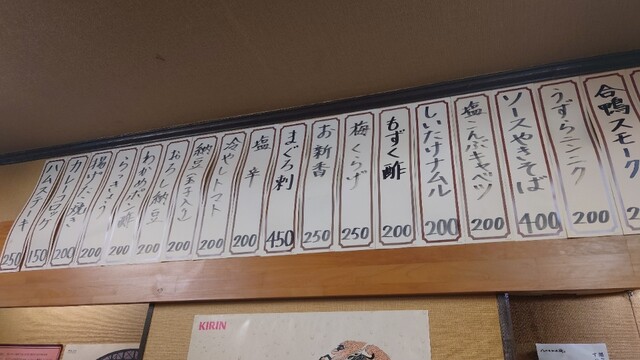 合鴨スモーク
うずらニンニク
200
ソースやきそば
400
塩こんぶキャベツ
200
しいたけナムル
200
もずく酢
200
梅くらげ
250
お新香
250
まぐろ刺
450
塩辛
200
冷やしトマト
200
納豆(玉子入り)
200
おろし納豆
200
わかめポン酢
200
らっきょう
200
揚げたこ焼き
200
カレーコロッケ
150
ハムステーキ
250
KIRIN